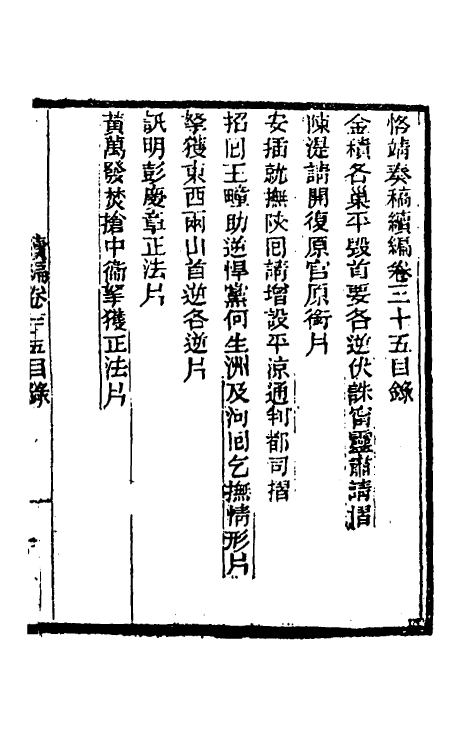 恪靖奏稿續編卷三十五目錄
金積各巢平毀首要各逆伏誅甯靈肅清摺
陳湜請開復原官原銜片
安插就撫陝回請增設平涼通判都司摺
招回王疃助逆悍黨何生洲及河回乞撫情形片
拏獲東西兩山首逆各逆片
訊明彭慶章正法片
黃萬發焚搶中衞拏獲正法片
續編卷三十五目錄